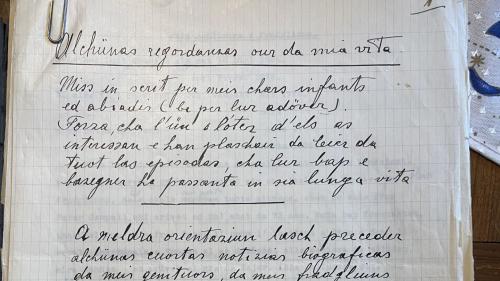 Alchünas regordanzas our da mia vita
Miss in scrit per meis chars infants
ed abiadis (be per lur adöver).
Forza, cha l'ün o l'oter d'els as
interessan e han plaschair da leier da
tuot las episodas, cha lur bap e
bazegner ha passantà in sia lunga vita
A meldra orientaziun lasch preceder
alchünas cuortas notizias biograficas
da meis genituors, da mus fradgliuns